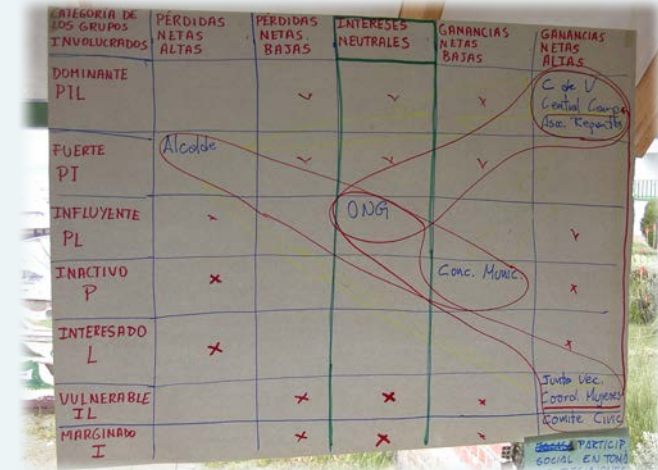 CATEGORÍA DE
LOS GRUPOS
INVOLUCRADOS
PÉRDIDAS
NETAS
ALTAS
PÉRDIDAS
NETAS
BAJAS
INTERESES
NEUTRALES
GANANCIAS
NETAS
BAJAS
GANANCIAS
NETAS
ALTAS
DOMINANTE
PIL
C de V
Central Camp.
Asc.
FUERTE
PI
Alcalde
INFLUYENTE
PL
ONG
INACTIVO
P
Conc. Munic.
INTERESADO
L
VULNERABLE
IL
Junta Vec.
Coord. Mujeres
MARGINADO
I
Comite Civic
PARTICIP
SOCIAL EN TOMA